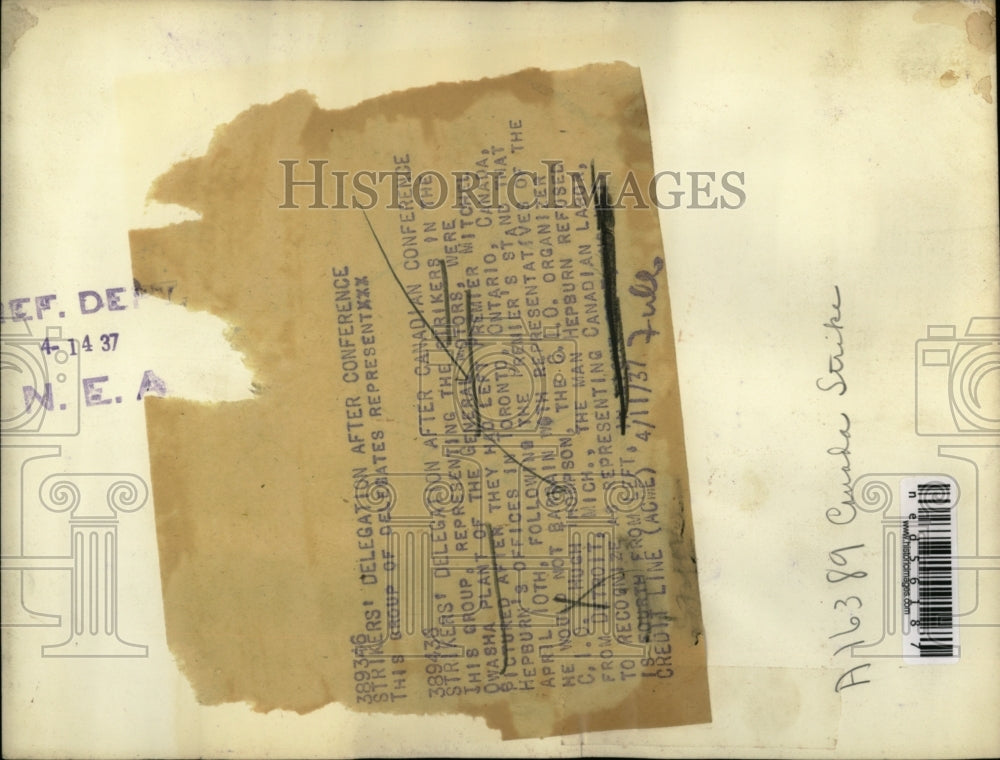 REF. DEPT.
4-14 37
N. E. A.
389346
STRIKERS' DELEGATION AFTER CONFERENCE
THIS GROUP OF DELEGATES REPRESENTXXX
389439
STRIKERS' DELEGATION AFTER CANADIAN CONFERENCE
THIS GROUP, REPRESENTING THE STRIKERS IN THE
OWASHA PLANT OF THE GENERAL MOTORS, WERE
PICTURED AFTER THEY HAD LEFT PREMIER MITCHELL
HEPBURN'S OFFICES IN TORONTO, ONTARIO, CANADA,
APRIL 10TH, FOLLOWING THE PREMIER'S STAND THAT
HE WOULD NOT BARGAIN WITH REPRESENTATIVES OF THE
C. I. O. HUGH THOMPSON, THE C. I. O. ORGANIZER
FROM DETROIT, MICH., THE MAN HEPBURN REFUSED
TO RECOGNIZE AS REPRESENTING CANADIAN LABOR,
IS FOURTH FROM LEFT.
CREDIT LINE (ACME) 4/11/37
HISTORIC IMAGES
A 116389 Canada Strike
www.historicimages.com
ned56187